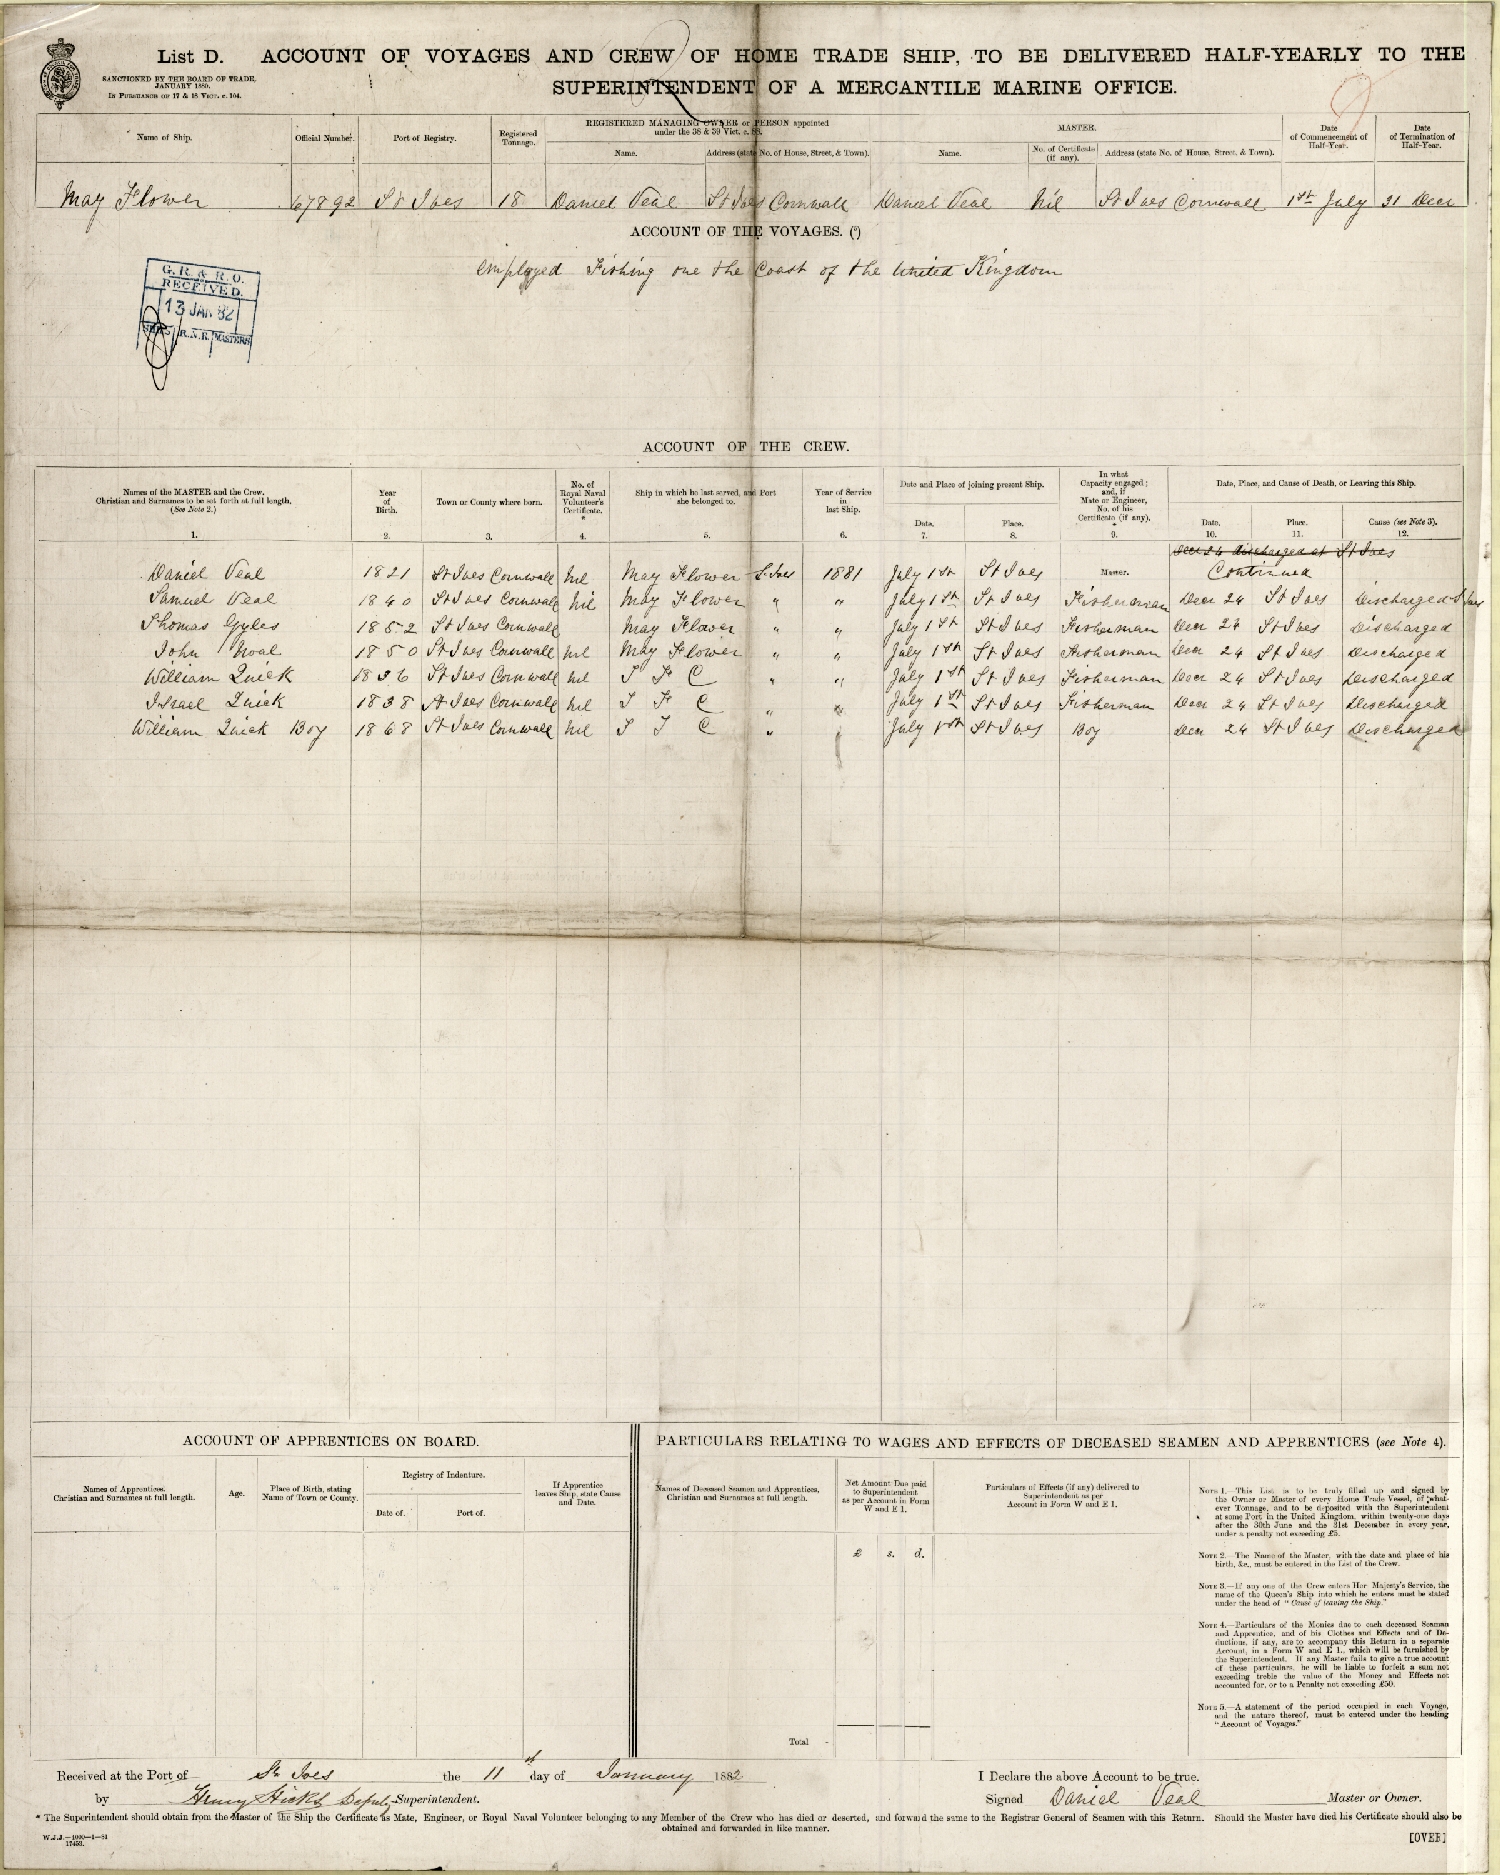 List D. ACCOUNT OF VOYAGES AND CREW OF HOME TRADE SHIP, TO BE DELIVERED HALF-YEARLY TO THE
SUPERINTENDENT OF A MERCANTILE MARINE OFFICE.
SANCTIONED BY THE BOARD OF TRADE,
JANUARY 1880.
IN PURSUANCE OF 17 & 18 VICT. c. 104.
Name of Ship. Official Number. Port of Registry. Registered Tonnage. REGISTERED MANAGING OWNER or PERSON appointed under the 38 & 39 Vict. c. 88. MASTER. Date of Commencement of Half-Year. Date of Termination of Half-Year.
Name. Address (state No. of House, Street, & Town). Name. No. of Certificate (if any). Address (state No. of House, Street, & Town).
May Flower 67892 St Ives 18 Daniel Veal St Ives Cornwall Daniel Veal Nil St Ives Cornwall 1st July 31 Decr
ACCOUNT OF THE VOYAGES. (5)
employed Fishing one the Coast of the United Kingdom
G. R. & R. O.
RECEIVED.
13 JAN. 82
SHIPS R.N.R. MASTERS
ACCOUNT OF THE CREW.
Names of the MASTER and the Crew. Christian and Surnames to be set forth at full length. (See Note 2.) Year of Birth. Town or County where born. No. of Royal Naval Volunteer's Certificate. * Ship in which he last served, and Port she belonged to. Year of Service in last Ship. Date and Place of joining present Ship. In what Capacity engaged; and, if Mate or Engineer, No. of his Certificate (if any). * Date, Place, and Cause of Death, or Leaving this Ship.
Date. Place. Date. Place. Cause (see Note 3).
1. 2. 3. 4. 5. 6. 7. 8. 9. 10. 11. 12.
Decr 24 discharged at St Ives
Daniel Veal 1821 St Ives Cornwall Nil May Flower St Ives 1881 July 1st St Ives Master. Continued
Samuel Veal 1840 St Ives Cornwall Nil May Flower " " July 1st St Ives Fisherman Decr 24 St Ives Discharged St Ives
Thomas Gyles 1852 St Ives Cornwall May Flower " " July 1st St Ives Fisherman Decr 24 St Ives Discharged
John Noal 1850 St Ives Cornwall Nil May Flower " " July 1st St Ives Fisherman Decr 24 St Ives Discharged
William Quick 1836 St Ives Cornwall Nil T F C " " July 1st St Ives Fisherman Decr 24 St Ives Discharged
Israel Quick 1838 St Ives Cornwall Nil T F C " " July 1st St Ives Fisherman Decr 24 St Ives Discharged
William Quick Boy 1868 St Ives Cornwall Nil T F C " July 1st St Ives Boy Decr 24 St Ives Discharged
ACCOUNT OF APPRENTICES ON BOARD.
Names of Apprentices. Christian and Surnames at full length. Age. Place of Birth, stating Name of Town or County. Registry of Indenture. If Apprentice leaves Ship, state Cause and Date.
Date of. Port of.
PARTICULARS RELATING TO WAGES AND EFFECTS OF DECEASED SEAMEN AND APPRENTICES (see Note 4).
Names of Deceased Seamen and Apprentices, Christian and Surnames at full length. Net Amount Due paid to Superintendent as per Account in Form W and E 1. Particulars of Effects (if any) delivered to Superintendent as per Account in Form W and E 1.
£ s. d.
Total -
NOTE 1.—This List is to be truly filled up and signed by
the Owner or Master of every Home Trade Vessel, of what-
ever Tonnage, and to be deposited with the Superintendent
at some Port in the United Kingdom, within twenty-one days
after the 30th June and the 31st December in every year,
under a penalty not exceeding £5.
NOTE 2.—The Name of the Master, with the date and place of his
birth, &c., must be entered in the List of the Crew.
NOTE 3.—If any one of the Crew enters Her Majesty's Service, the
name of the Queen's Ship into which he enters must be stated
under the head of "Cause of leaving the Ship."
NOTE 4.—Particulars of the Monies due to each deceased Seaman
and Apprentice, and of his Clothes and Effects and of De-
ductions, if any, are to accompany this Return in a separate
Account, in a Form W and E 1., which will be furnished by
the Superintendent. If any Master fails to give a true account
of these particulars, he will be liable to forfeit a sum not
exceeding treble the value of the Money and Effects not
accounted for, or to a Penalty not exceeding £50.
NOTE 5.—A statement of the period occupied in each Voyage,
and the nature thereof, must be entered under the heading
"Account of Voyages."
Received at the Port of St Ives the 11th day of January 1882
by Henry Hicks Deputy Superintendent.
I Declare the above Account to be true.
Signed Daniel Veal Master or Owner.
* The Superintendent should obtain from the Master of the Ship the Certificate as Mate, Engineer, or Royal Naval Volunteer belonging to any Member of the Crew who has died or deserted, and forward the same to the Registrar General of Seamen with this Return. Should the Master have died his Certificate should also be
obtained and forwarded in like manner.
W.J.J.—1000—1—81
17453.
[OVER]